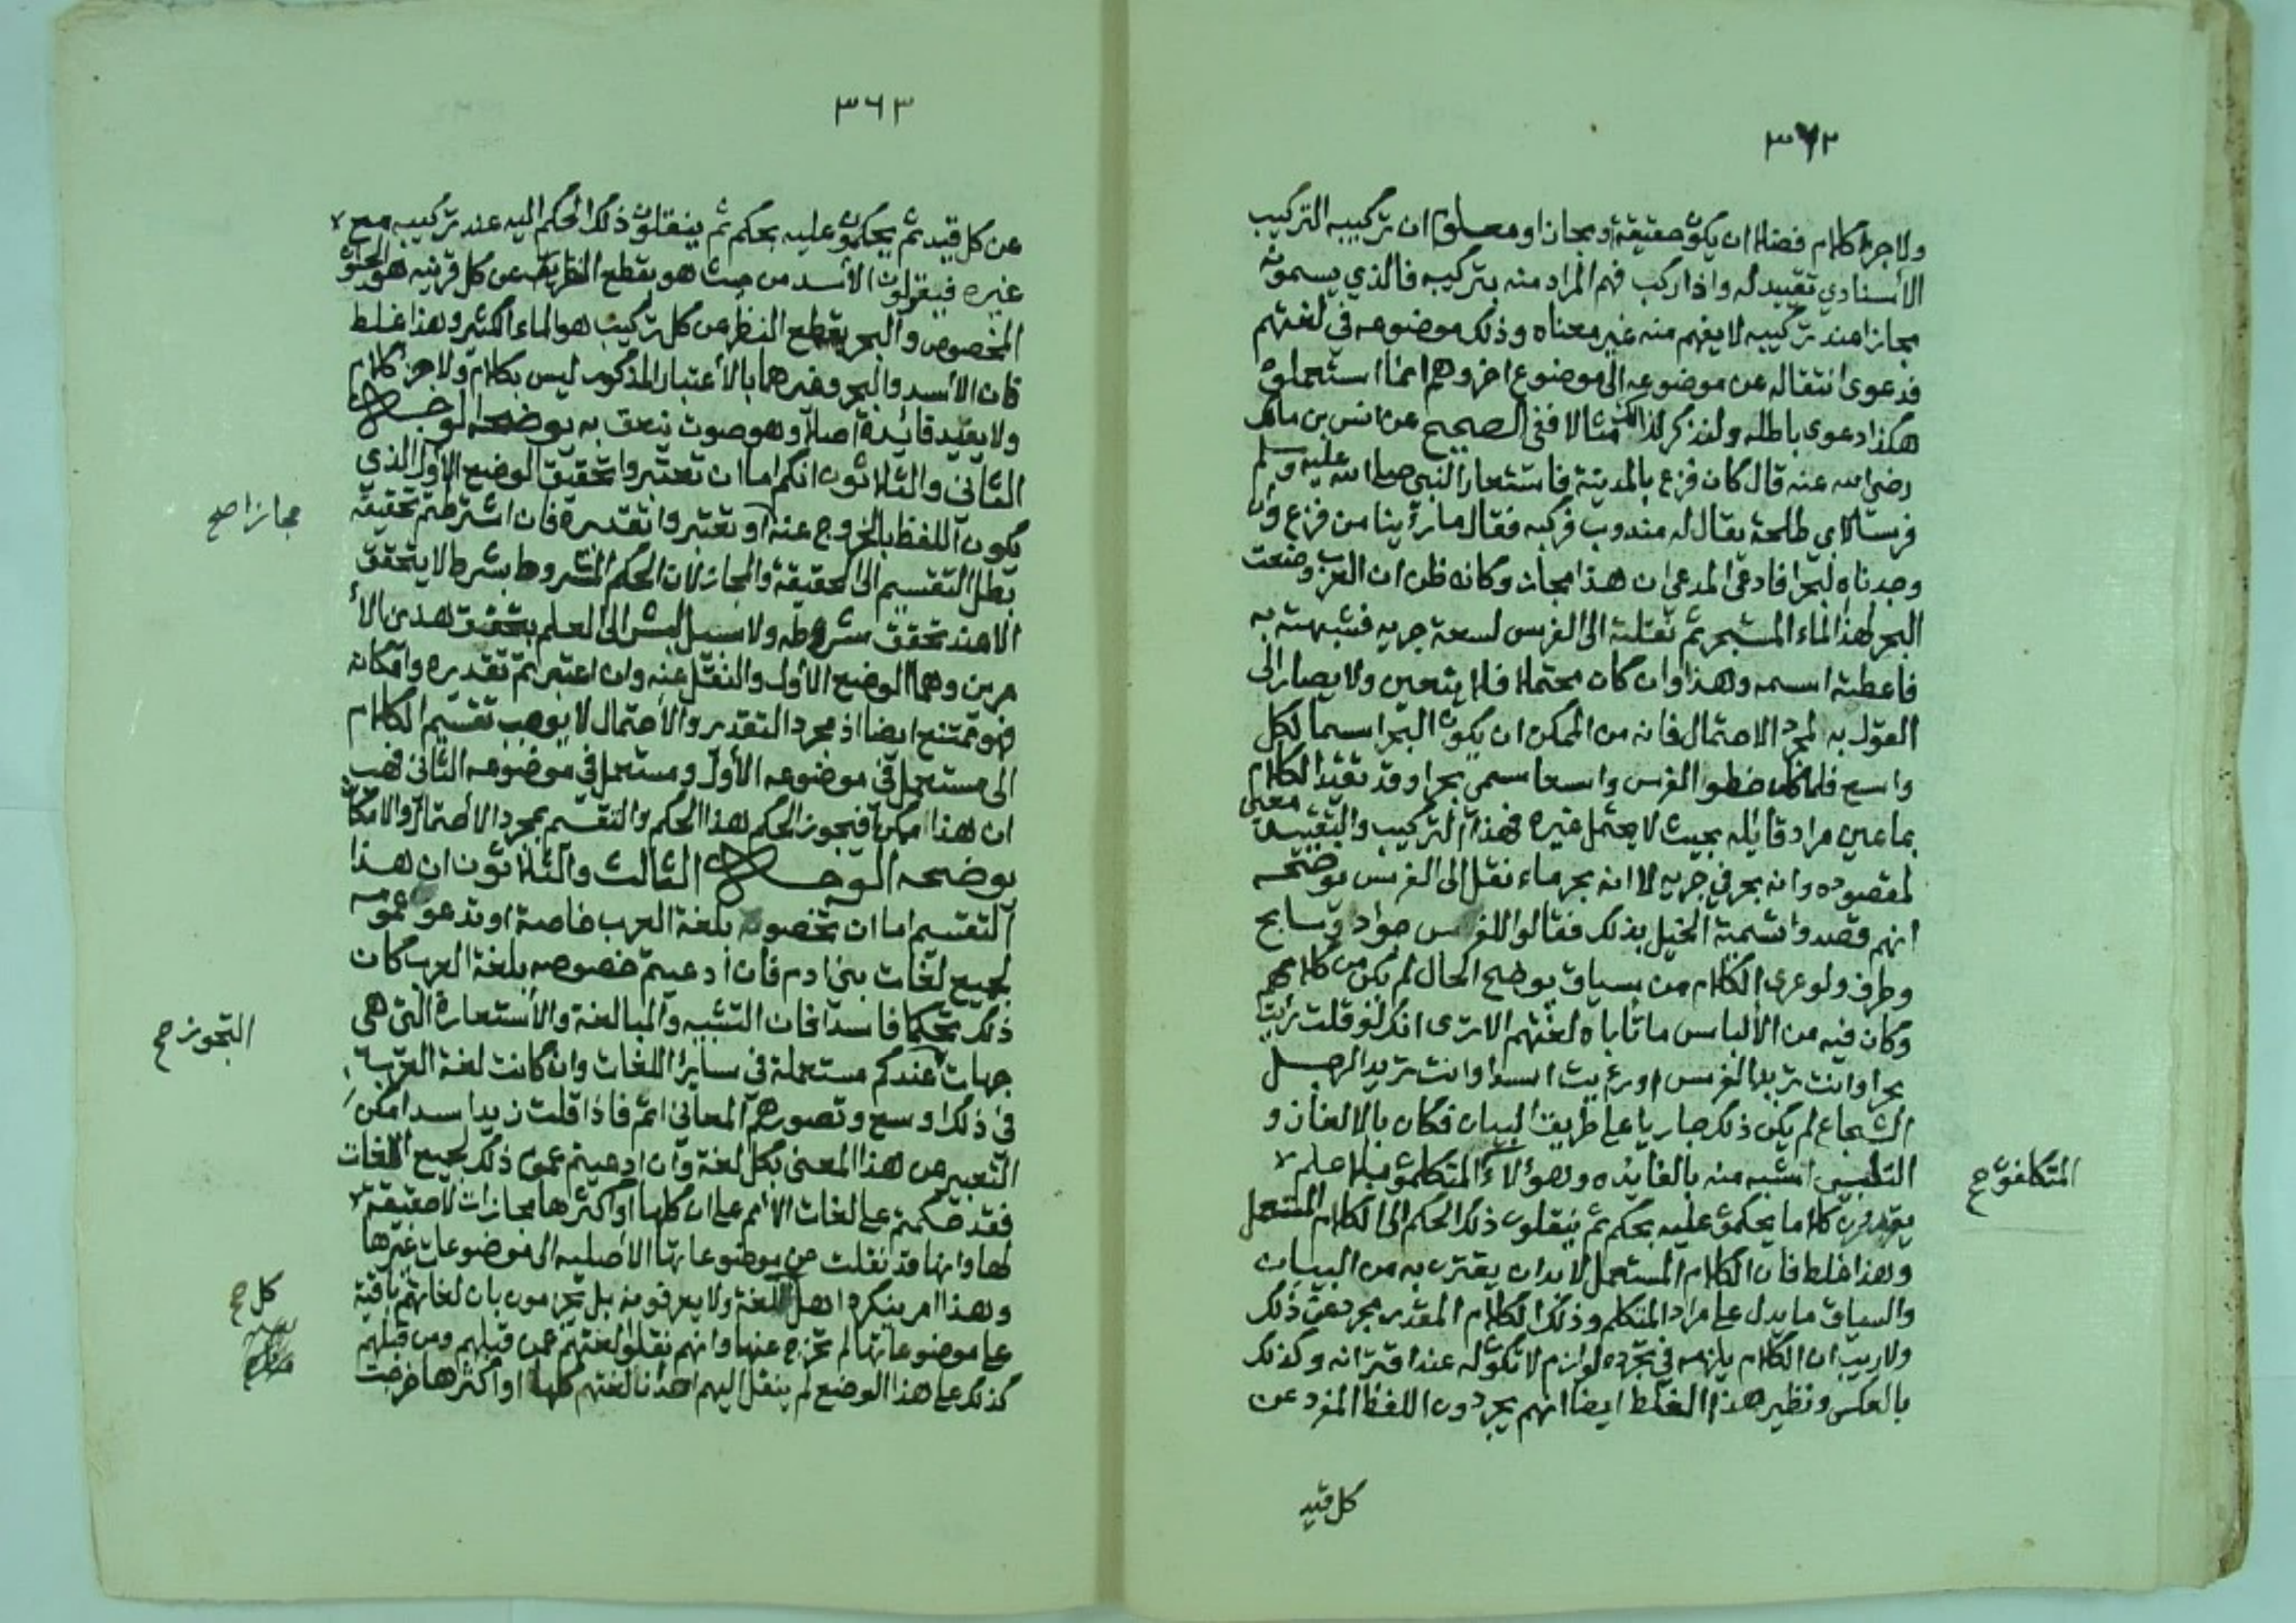 ٣٦٢
ولا جزء كلام فضلا ان يكون حقيقة او مجازا ومعلوم ان تركيبه التركيب
الأسنادي تقييد له واذا ركب فهم المراد منه بتركيبه فالذي يسمونه
مجازا عند تركيبه لا يفهم منه غير معناه وذلك موضوعه في لغتهم
فدعوى انتقاله عن موضوعه الى موضوع اخر وهم انما استعملوه
هكذا دعوى باطله ولنذكر لذلك مثالا ففي الصحيح عن انس بن مالك
رضي الله عنه قال كان فزع بالمدينة فاستعار النبي صلى الله عليه وسلم
فرسا لابي طلحة يقال له مندوب فركبه فقال ما رأينا من فزع وان
وجدناه لبحرا فادعى المدعي ان هذا مجاز وكانه ظن ان العرب وضعت
البحر لهذا الماء المستبحر ثم نقلته الى الفرس لسعة جريه فشبهته به
فاعطته اسمه وهذا وان كان محتملا فلا يتعين ولا يصار الى
القول به لمجرد الاحتمال فانه من الممكن ان يكون البحر اسما لكل
واسع فلما كان خطو الفرس واسعا سمي بحرا وقد تقيد الكلام
بما عين مراد قائله بحيث لا يحتمل غيره فهذا التركيب والتقييد معين
لمقصوده وانه بحر في جريه لا انه بحر ماء نقل الى الفرس يوضحه
انهم قصدوا تسمية الخيل بذلك فقالوا للفرس جواد وسابح
وطرف ولو عرى الكلام من سياق يوضح الحال لم يكن من كلامهم
وكان فيه من الألباس ما تأباه لغتهم الا ترى انك لو قلت رأيت
بحرا وانت تريد الفرس او رأيت اسدا وانت تريد الرجل
الشجاع لم يكن ذلك جاريا على طريق البيان فكان بالالغاز و
التلبيس اشبه منه بالفايده وهؤلاء المتكلمون بلا علم
يقدرون كلاما يحكمون عليه بحكم ثم ينقلون ذلك الحكم الى الكلام المستعمل
وهذا غلط فان الكلام المستعمل لا بد ان يقترن به من البيان
والسياق ما يدل على مراد المتكلم وذلك الكلام المقدر مجرد عن ذلك
ولا ريب ان الكلام يلزمه في تجرده لوازم لا تكون له عند اقترانه وكذلك
بالعكس ونظير هذا الغلط ايضا انهم يجردون اللفظ المفرد عن
كل قيد
٣٦٣
عن كل قيد ثم يحكمون عليه بحكم ثم ينقلون ذلك الحكم اليه عند تركيبه مع
غيره فيقولون الأسد من حيث هو بقطع النظر عن كل قرينه هو الحيوان
المخصوص والبحر بقطع النظر عن كل تركيب هو الماء الكثير وهذا غلط
فان الأسد والبحر وغيرهما بالأعتبار المذكور ليس بكلام ولا جزء كلام
ولا يفيد فائدة اصلا وهو صوت ينعق به يوضحه الوجه
الثاني والثلاثون انكم اما ان تعتبروا تحقيق الوضع الأول الذي
يكون اللفظ بالخروج عنه او تعتبروا تقديره فان اشترطتم تحقيقه
مجازا صح
بطل التقسيم الى الحقيقة والمجاز لان الحكم المشروط بشرط لا يتحقق
الا عند تحقق شرطه ولا سبيل للبشر الى العلم بتحقيق هذين الأ
مرين وهما الوضع الأول والنقل عنه وان اعتبرتم تقديره وامكانه
فهو ممتنع ايضا اذ مجرد التقدير والأحتمال لا يوجب تقسيم الكلام
الى مستعمل في موضوعه الأول ومستعمل في موضوعه الثاني فهب
ان هذا امكن افيجوز الحكم لهذا الحكم والتقسيم بمجرد الأحتمال والامكان
يوضحه الوجه الثالث والثلاثون ان هذا
التقسيم اما ان تخصوه بلغة العرب خاصة او تدعوا عمومه
لجميع لغات بني ادم فان ادعيتم خصوصه بلغة العرب كان
ذلك تحكما فاسدا فان التشبيه والمبالغة والأستعارة التي هي
جهات عندكم مستعملة في سائر اللغات وان كانت لغة العرب
التجوز صح
في ذلك اوسع وتصورهم المعاني اتم فاذا قلت زيد اسد امكن
التعبير عن هذا المعنى بكل لغة وان ادعيتم عموم ذلك لجميع اللغات
فقد حكمتم على لغات الأمم على ان كلها او اكثرها مجازات لا حقيقة
لها وانها قد نقلت عن موضوعاتها الأصلية الى موضوعات غيرها
وهذا امر ينكره اهل اللغة ولا يعرفونه بل يجزمون بان لغاتهم باقية
كل صح
على موضوعاتها لم تخرج عنها وانهم نقلوا لغتهم عمن قبلهم ومن قبلهم
كذلك على هذا الوضع لم ينقل اليهم احد ان لغتهم كلها او اكثرها خرجت